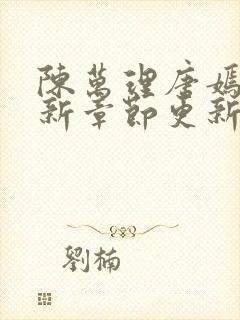 陳萬理唐嫣
新章節更新
劉楠